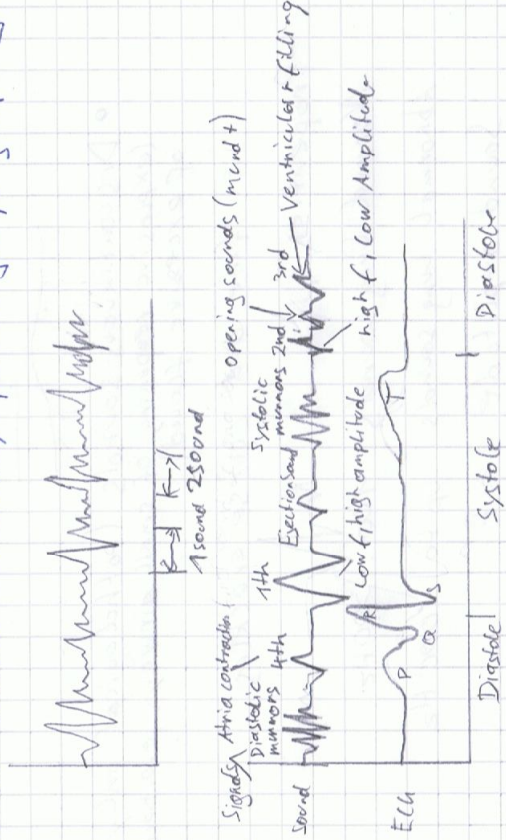 1sound 2sound
opening sounds (m und t)
Signals
Atria contraction
Diastolic
murmors
4th
1th
Ejection Sound
Systolic
murmors
2nd
3rd
Ventricular filling
Sound
low f, high amplitude
high f, low Amplitude
ECG
P
Q
R
S
T
Diastole
Systole
Diastole